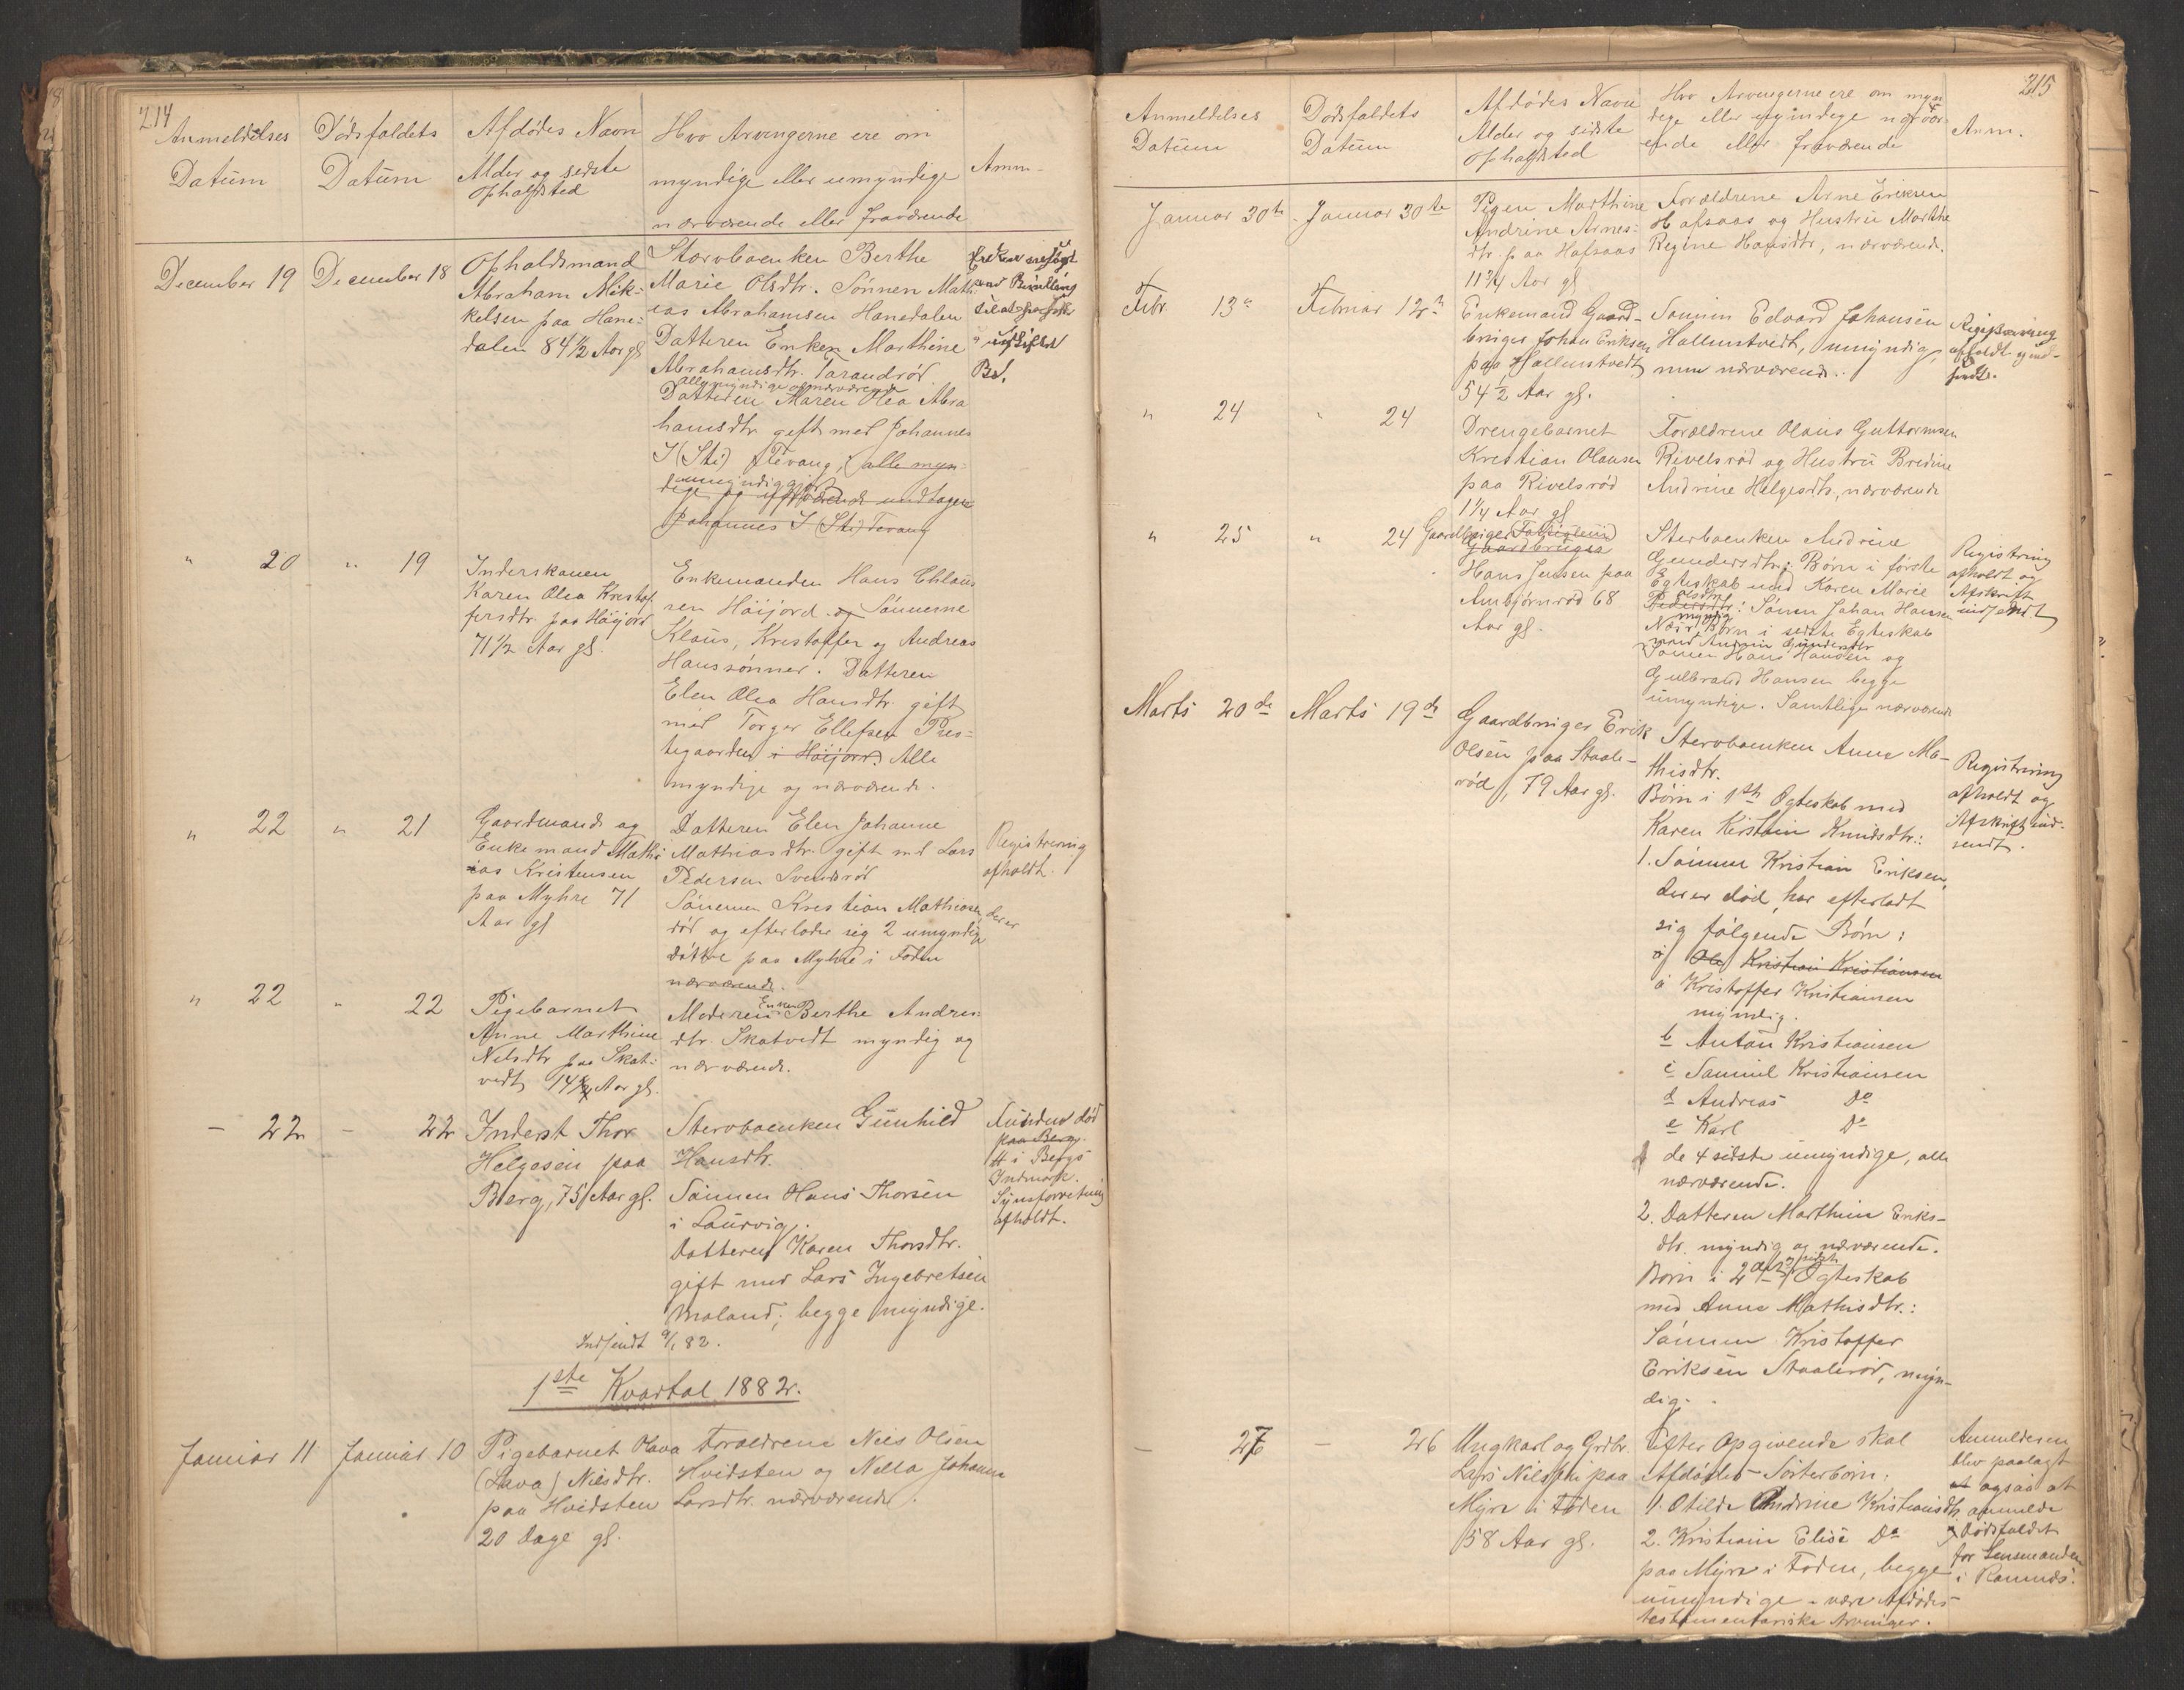 214
Anmeldelses
Datum
Dödsfaldets
Datum
Afdödes Navn
Alder og sidste
Opholdsted
Hvo Arvingerne ere om
myndige eller umyndige
nærværende eller fraværende
Anm.
December 19
December 18
Opholdsmand
Abraham Mik-
kelsen paa Hane-
dalen 84 1/2 Aar gl
Stervboenken Berthe
Marie Olsdtr. Sönnen Math-
ias Abrahamsen Hanedalen
Datteren Enken Marthine
Abrahamsdtr. Tarandröd
alle myndige og nærværende
Datteren Maren Olea Abra
hamsdtr. gift med Johannes
I (Sti) Tevang; alle myn-
umyndige
dige og nærværende undtagen
Johannes I (Sti) Tevang
" 20
" 19
Inderskonen
Karen Olea Kristof
fersdtr. paa Höijord
71 1/2 Aar gl.
Enkemanden Hans Chlaus
sen Höijord og Sönnerne
Klaus, Kristoffer og Andreas
Hanssönner. Datteren
Elen Olea Hansdtr. gift
med Torger Ellefsen Pres-
tegaarden i Höijord. Alle
myndige og nærværende.
" 22
" 21
Gaardmand og
Enkemand Mathi
ias Kristensen
paa Myhre 71
Aar gl
Datteren Elen Johanne
Mathiasdtr. gift med Lars
Pedersen Svendsröd
Sönnen Kristian Mathiasen der er
död og efterlader sig 2 umyndige
döttre paa Myhre i Foden
nærværende.
Registrering
afholdt.
" 22
" 22
Pigebarnet
Anne Marthine
Nilsdtr paa Skat-
vedt 14 Aar gl.
Moderen Enken Berthe Andrea
dtr. Skatvedt myndig og
nærværende.
- 22
- 22
Inderst Thor
Helgesen paa
Berg, 75 Aar gl.
Stervboenken Gunhild
Hansdtr.
Sönnen Hans Thorsen
i Laurvig.
Datteren Karen Thorsdtr.
gift med Lars Ingebretsen
Moland; begge myndige.
Funden död
paa Berg
i Bergs
Indmark.
Synsforretning
afholdt.
Indsendt 9/1 82.
1ste Kvartal 1882.
Januar 11
Januar 10
Pigebarnet Olava
(Lava) Nilsdtr.
paa Hvidsten
20 Dage gl.
Foreldrene Nils Olsen
Hvidsten og Nella Johanne
Larsdtr. nærværende.
215
Anmeldelses
Datum
Dödsfaldets
Datum
Afdödes Navn
Alder og sidste
Opholdsted
Hvo Arvingerne ere om myn
dige eller umyndige nærvær-
ende eller fraværende
Anm.
Januar 30te
Januar 30te
Pigen Marthine
Andrine Arnes-
dtr. paa Hafsaas
11 3/4 Aar gl
Foreldrene Arne Eriksen
Hafsaas og Hustru Marthe
Regine Hansdtr, nærværende.
Febr. 13
Februar 12
Enkemand Gaard-
bruger Johan Eriksen
paa Hallenstvedt
54 1/2 Aar gl.
Sönnen Edvard Johansen
Hallenstvedt, umyndig,
men nærværende.
Registrering
afholdt og ind-
sendt.
" 24
" 24
Drengebarnet
Kristian Olausen
paa Rivelsröd
1 1/4 Aar gl
Foreldrene Olaus Guttormsen
Rivelsröd og Hustru Bredine
Andrine Helgesdtr, nærværende
" 25
" 24
Gaardbruger
Gaardbruger
Hans Jensen paa
Anbjörnröd 68
Aar gl.
Sterboenken Andrine
Gundersdtr; Börn i förste
Egteskab med Karen Marie
Olsdtr
Pedersdtr: Sönen Johan Hansen
myndig
Nær. Börn i sidste Egteskab
med Andrine Gundersdtr
Sönen Hans Hansen og
Gulbrand Hansen begge
umyndige. Samtlige nærværende
Registring
afholdt og
Afskrift
indsendt
Marts 20de
Marts 19de
Gaardbruger Erik
Olsen paa Staale-
röd, 79 Aar gl.
Stervboenken Anne Ma-
thisdtr.
Börn i 1ste Ogteskab med
Karen Kirstin Knudsdtr.:
1. Sönnen Kristian Eriksen,
der er död, har efterladt
sig fölgende Börn:
a Ole Kristian Kristiansen
a Kristoffer Kristiansen
myndig.
b Anton Kristiansen
c Samuel Kristiansen
d Andreas Do
e Karl Do
de 4 sidste umyndige, alle
nærværende.
2. Datteren Marthine Eriks-
dtr. myndig og nærværende.
Börn i 2det og sidste Ogteskab
med Anne Mathisdtr.:
Sönnen Kristoffer
Eriksen Staaleröd, myn-
dig.
Registrering
afholdt og
Afskrift ind-
sendt.
- 27
- 26
Ungkarl og Grdbr.
Lars Nilsen paa
Myre i Foden
58 Aar gl.
Efter Opgivende skal
Afdödes Sösterbörn:
1. Otilde Andrine Kristiansdtr,
2. Kristian Elise Do
paa Myre i Foden, begge
umyndige - være Afdödes
testamentariske Arvinger.
Anmelderen
blev paalagt
at ogsaa at
anmelde
Dödsfaldet
for Lensmanden
i Ramnæs.